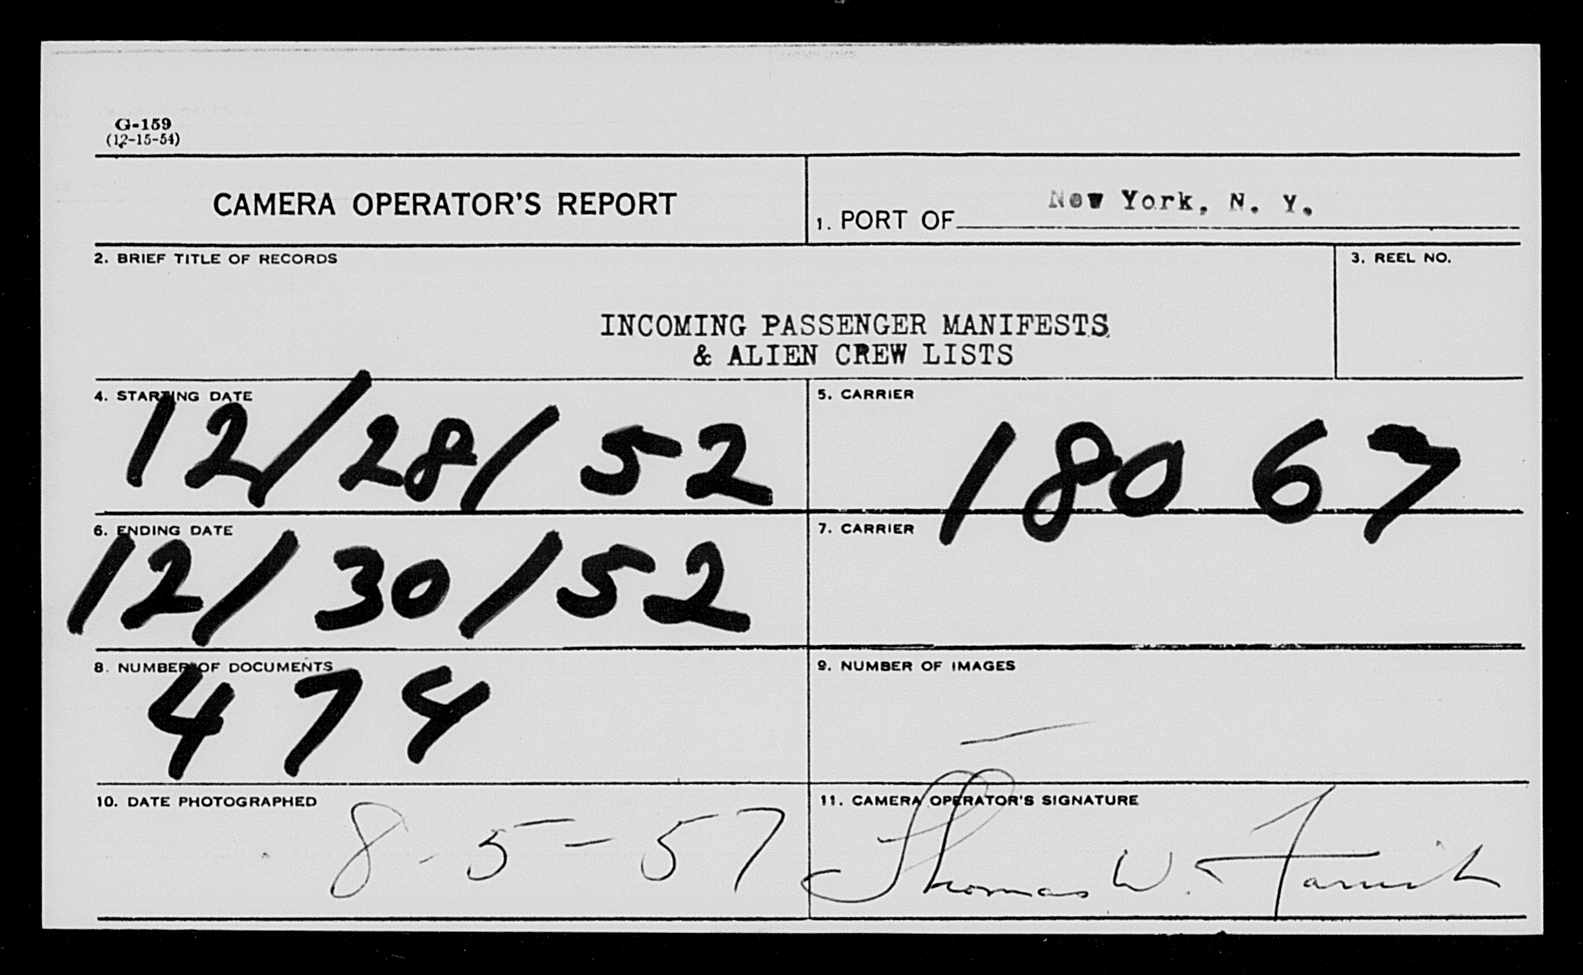 G-159
(12-15-54)
CAMERA OPERATOR'S REPORT
1. PORT OF New York, N. Y.
2. BRIEF TITLE OF RECORDS
3. REEL NO.
INCOMING PASSENGER MANIFESTS
& ALIEN CREW LISTS
4. STARTING DATE
12/28/52
5. CARRIER
180 67
6. ENDING DATE
12/30/52
7. CARRIER
8. NUMBER OF DOCUMENTS
474
9. NUMBER OF IMAGES
10. DATE PHOTOGRAPHED
8-5-57
11. CAMERA OPERATOR'S SIGNATURE
Thomas W.